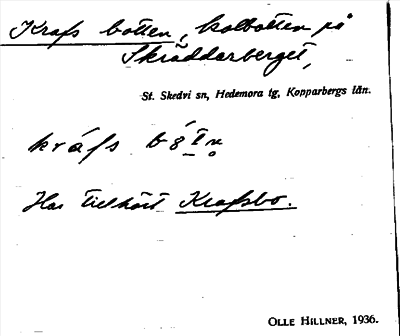 Krafs botten, kolbotten på
Skräddarberget,
St. Skedvi sn, Hedemora tg, Kopparbergs län.
kráfs
Har tillhört Krafsbo.
OLLE HILLNER, 1936.